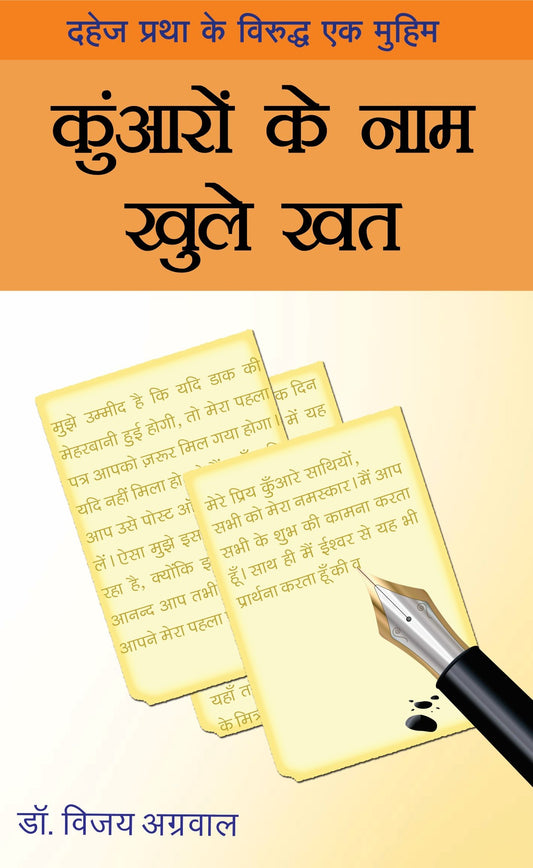 दहेज प्रथा के विरुद्ध एक मुहिम
कुंआरों के नाम
खुले खत
मुझे उम्मीद है कि यदि डाक की
मेहरबानी हुई होगी, तो मेरा पहला
पत्र आपको ज़रूर मिल गया होगा।
यदि नहीं मिला हो
आप उसे पोस्ट ऑ
लें। ऐसा मुझे इस
रहा है, क्योंकि इ
आनन्द आप तभी
आपने मेरा पहला
क दिन
में यह
यहाँ त
के मित्र
मेरे प्रिय कुँआरे साथियों,
सभी को मेरा नमस्कार। मैं आप
सभी के शुभ की कामना करता
हूँ। साथ ही मैं ईश्वर से यह भी
प्रार्थना करता हूँ की व
डॉ. विजय अग्रवाल